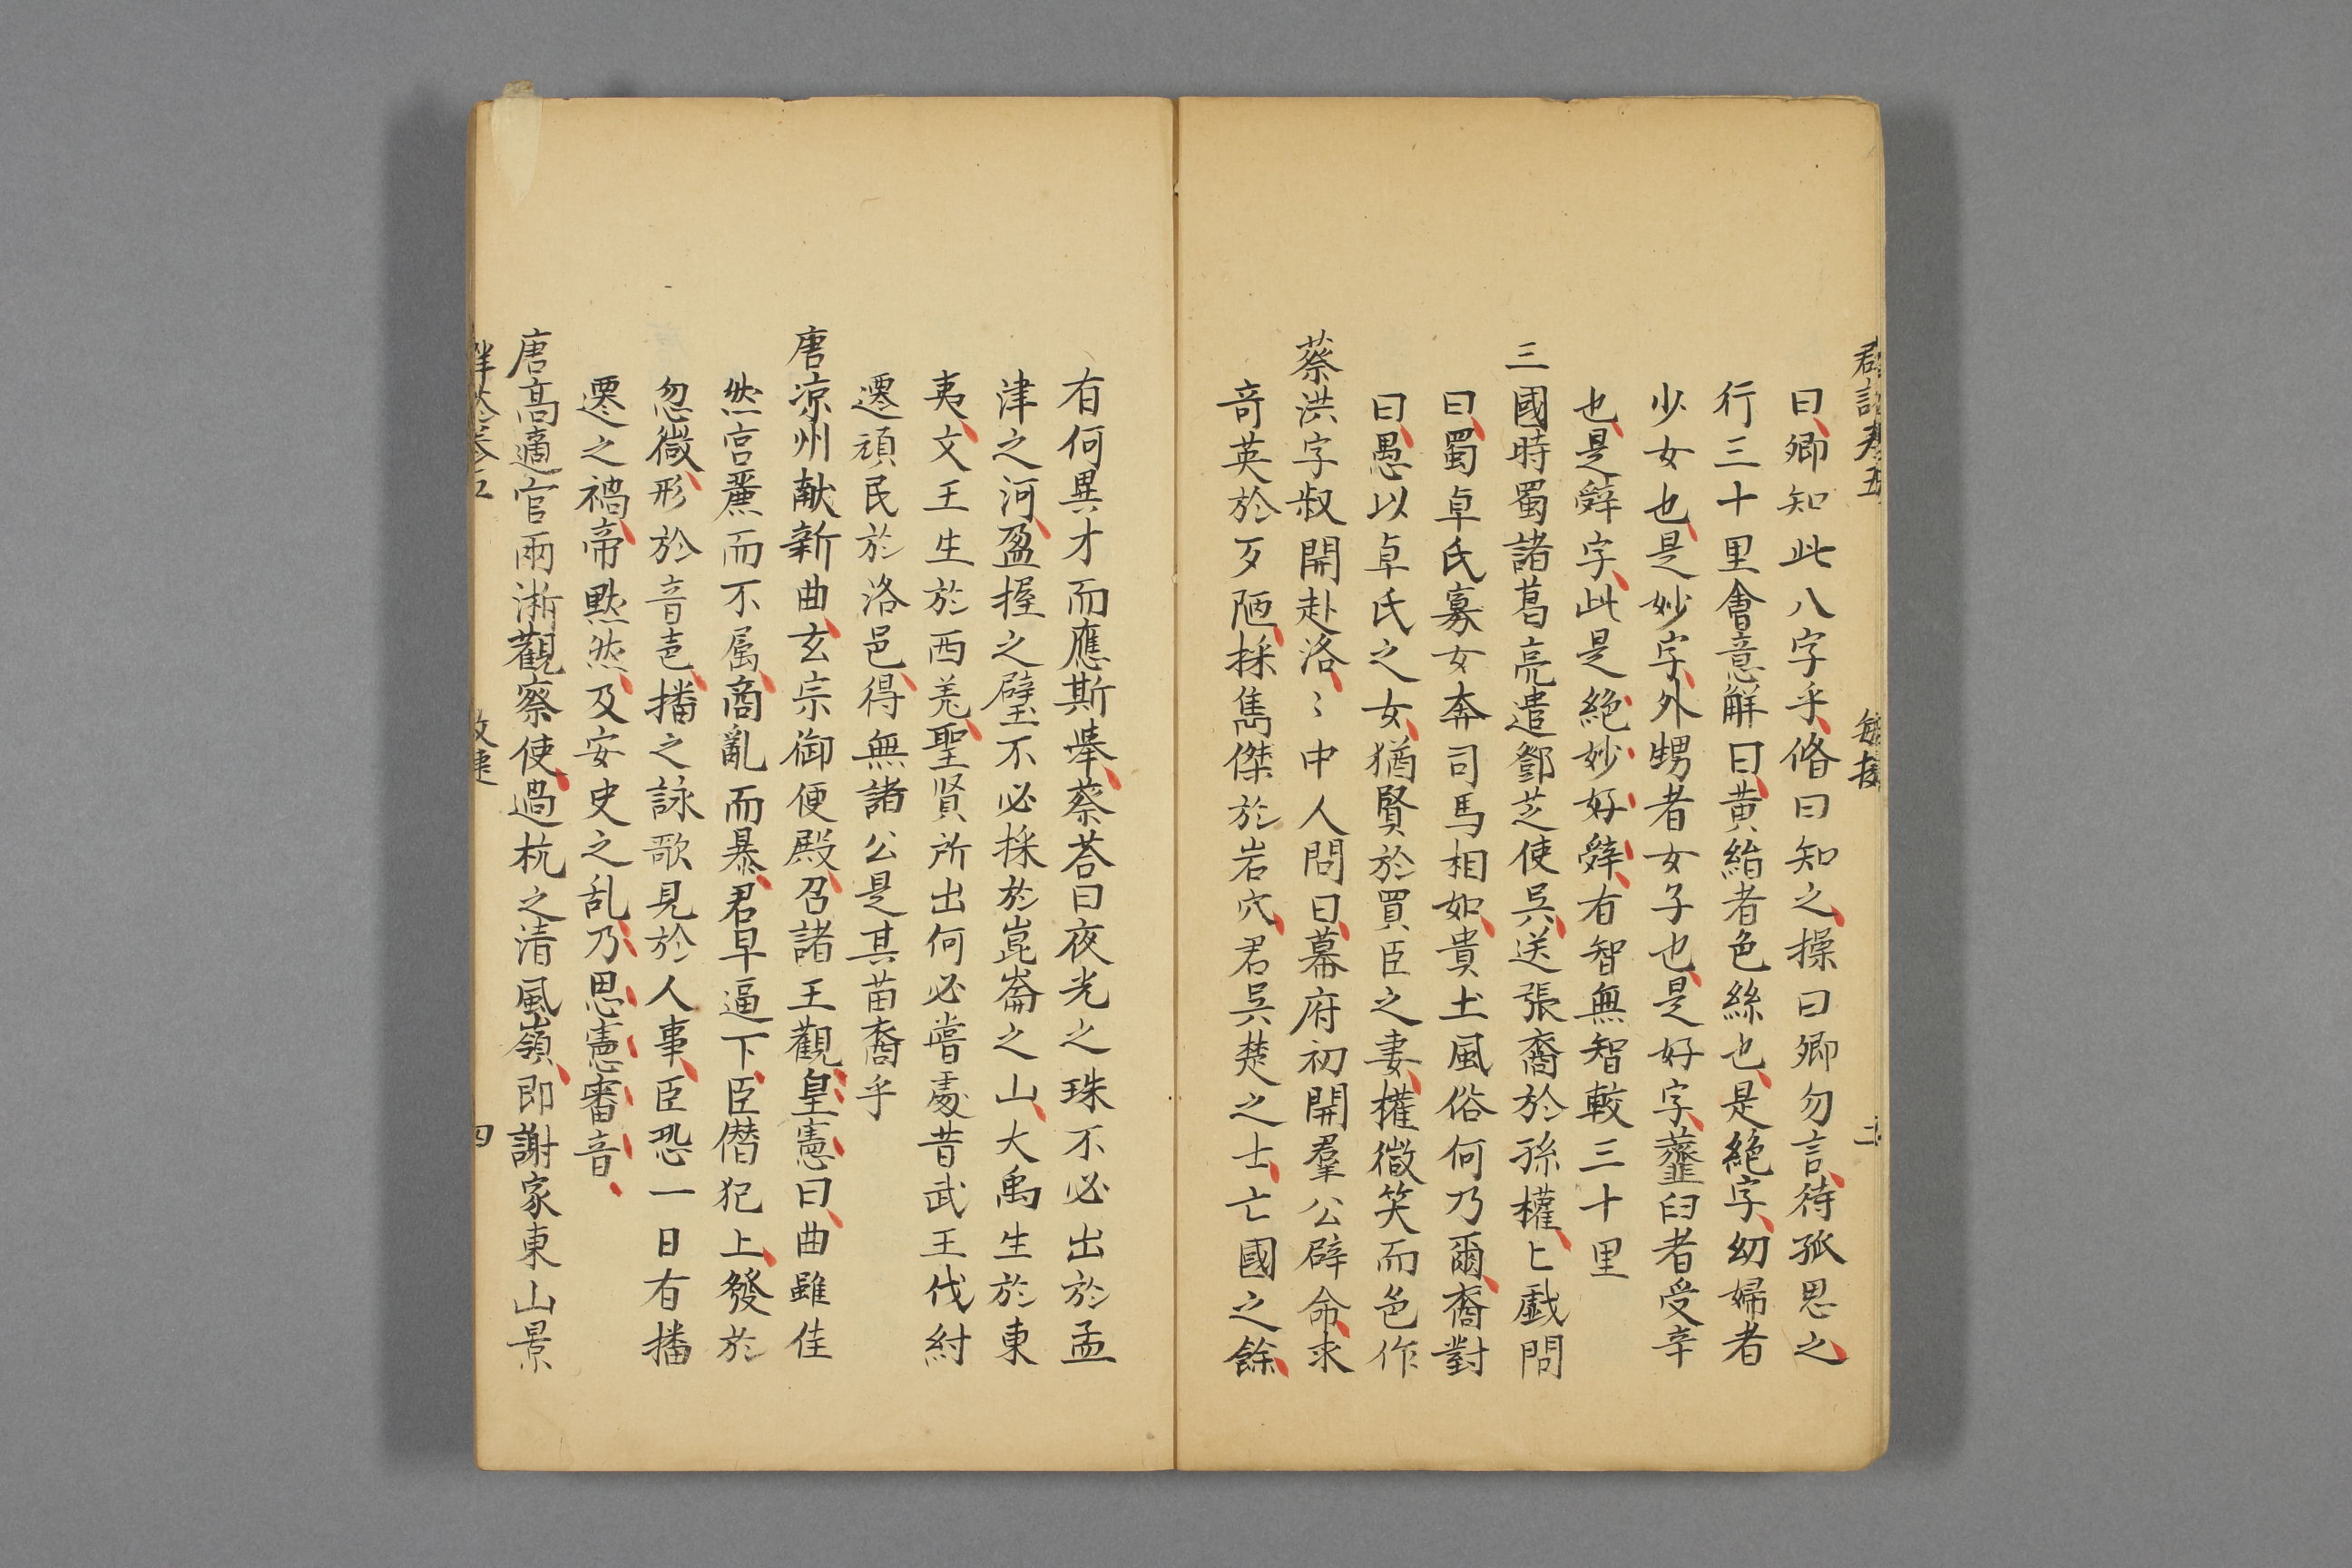 曰卿知此八字乎脩曰知之操曰卿勿言待孤思之
行三十里會意觧曰黄絹者色絲也是絶字㓜婦者
少女也是妙字外甥者女子也是好字虀臼者受辛
也是辤字此是絶妙好辤有智無智較三十里
三國時蜀諸葛亮遣鄧芝使吳送張裔於孫權〻戯問
曰蜀卓氏寡女奔司馬相如貴土風俗何乃爾裔對
曰愚以卓氏之女猶賢於買臣之妻權㣲笑而色作
蔡洪字叔開赴洛〻中人問曰幕府初開羣公辟命求
竒英於歹陋採雋傑於岩穴君吳楚之士亡國之餘
有何異才而應斯舉蔡荅曰夜光之珠不必出於孟
津之河盈握之璧不必採於崑崙之山大禹生於東
夷文王生於西羌聖賢所出何必嘗處昔武王伐紂
遷頑民於洛邑得無諸公是其苗裔乎
唐凉州献新曲玄宗御便殿召諸王觀皇憲曰曲雖佳
然宫䕠而不属商亂而暴君早逼下臣僣犯上發於
忽㣲形於音𠶷播之詠歌見於人事臣恐一日有播
遷之禍帝黙然及安史之乱乃思憲審音
唐高適官兩淛觀察使過杭之清風嶺即謝家東山景
四